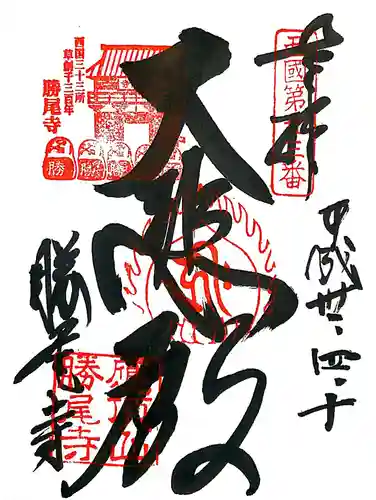 奉拝
西國第廿三番
平成卅、四、十
大悲殿
西国三十三所
草創千三百年
勝尾寺
勝
勝
勝
勝
勝尾寺
應頂山
勝尾寺